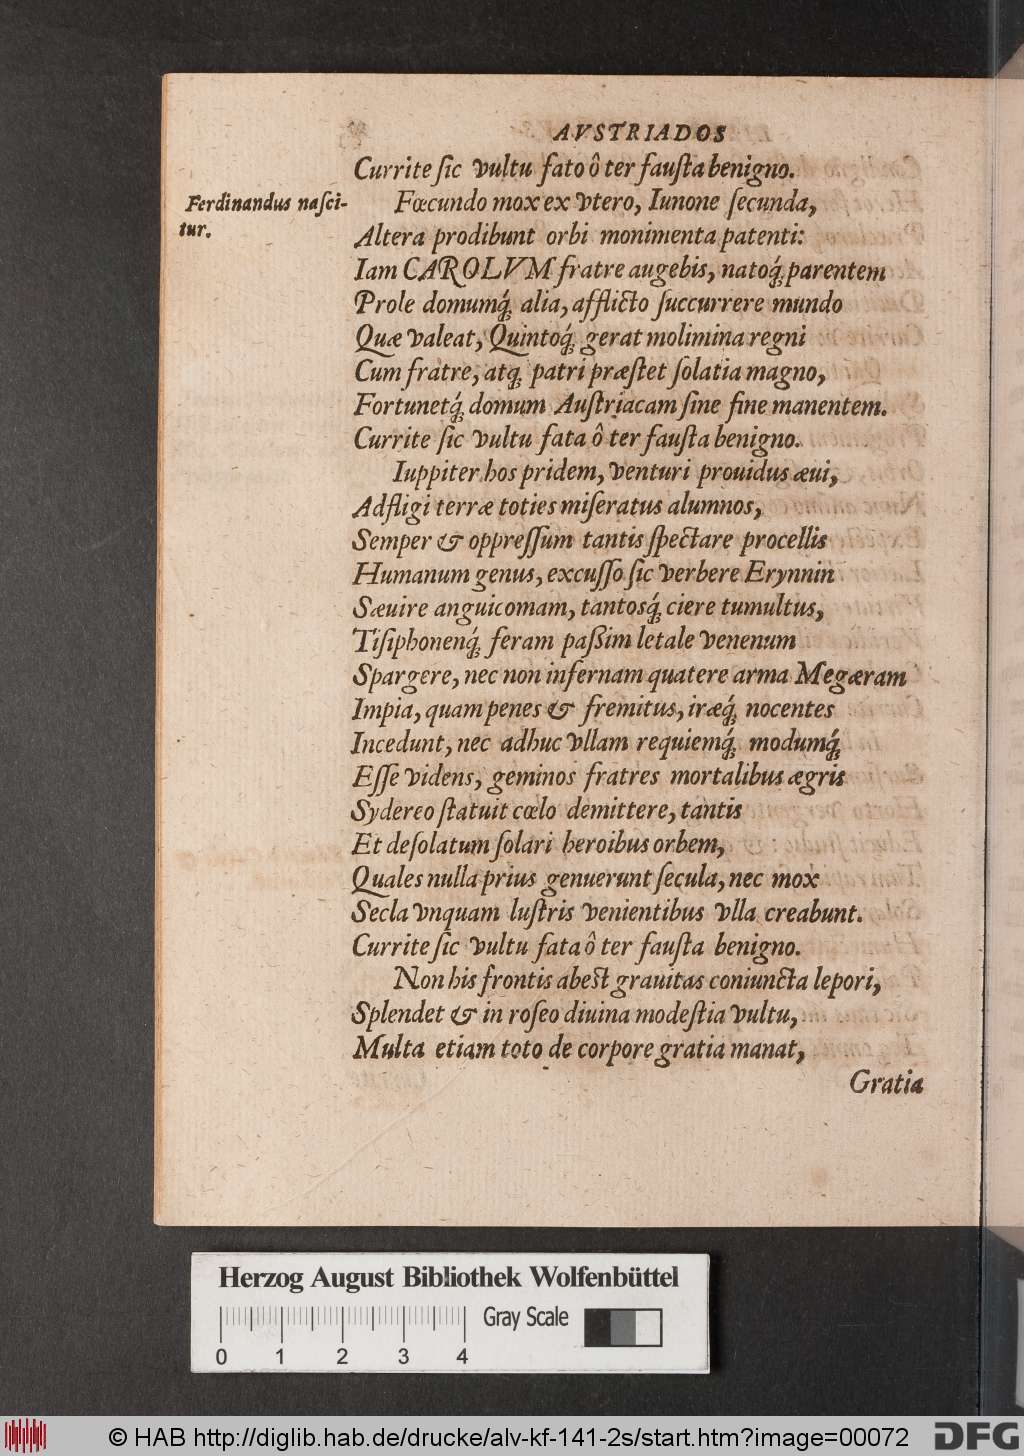 AVSTRIADOS
Currite ſic vultu fato ô ter fauſta benigno.
Ferdinandus naſci-
tur.
Fœcundo mox ex vtero, Iunone ſecunda,
Altera prodibunt orbi monimenta patenti:
Iam CAROLVM fratre augebis, natoq́; parentem
Prole domumq́; alia, afflicto ſuccurrere mundo
Quæ valeat, Quintoq́; gerat molimina regni
Cum fratre, atq; patri præſtet ſolatia magno,
Fortunetq́; domum Auſtriacam ſine fine manentem.
Currite ſic vultu fata ô ter fauſta benigno.
Iuppiter hos pridem, venturi prouidus æui,
Adfligi terræ toties miſeratus alumnos,
Semper & oppreſſum tantis ſpectare procellis
Humanum genus, excuſſo ſic verbere Erynnin
Sæuire anguicomam, tantosq́; ciere tumultus,
Tiſiphonenq́; feram paßim letale venenum
Spargere, nec non infernam quatere arma Megæram
Impia, quam penes & fremitus, iræq́; nocentes
Incedunt, nec adhuc vllam requiemq́; modumq́;
Eſſe videns, geminos fratres mortalibus ægris
Sydereo ſtatuit cœlo demittere, tantis
Et deſolatum ſolari heroibus orbem,
Quales nulla prius genuerunt ſecula, nec mox
Secla vnquam luſtris venientibus vlla creabunt.
Currite ſic vultu fata ô ter fauſta benigno.
Non his frontis abeſt grauitas coniuncta lepori,
Splendet & in roſeo diuina modeſtia vultu,
Multa etiam toto de corpore gratia manat,
Gratia
Herzog August Bibliothek Wolfenbüttel
Gray Scale
0 1 2 3 4
© HAB http://diglib.hab.de/drucke/alv-kf-141-2s/start.htm?image=00072
DFG